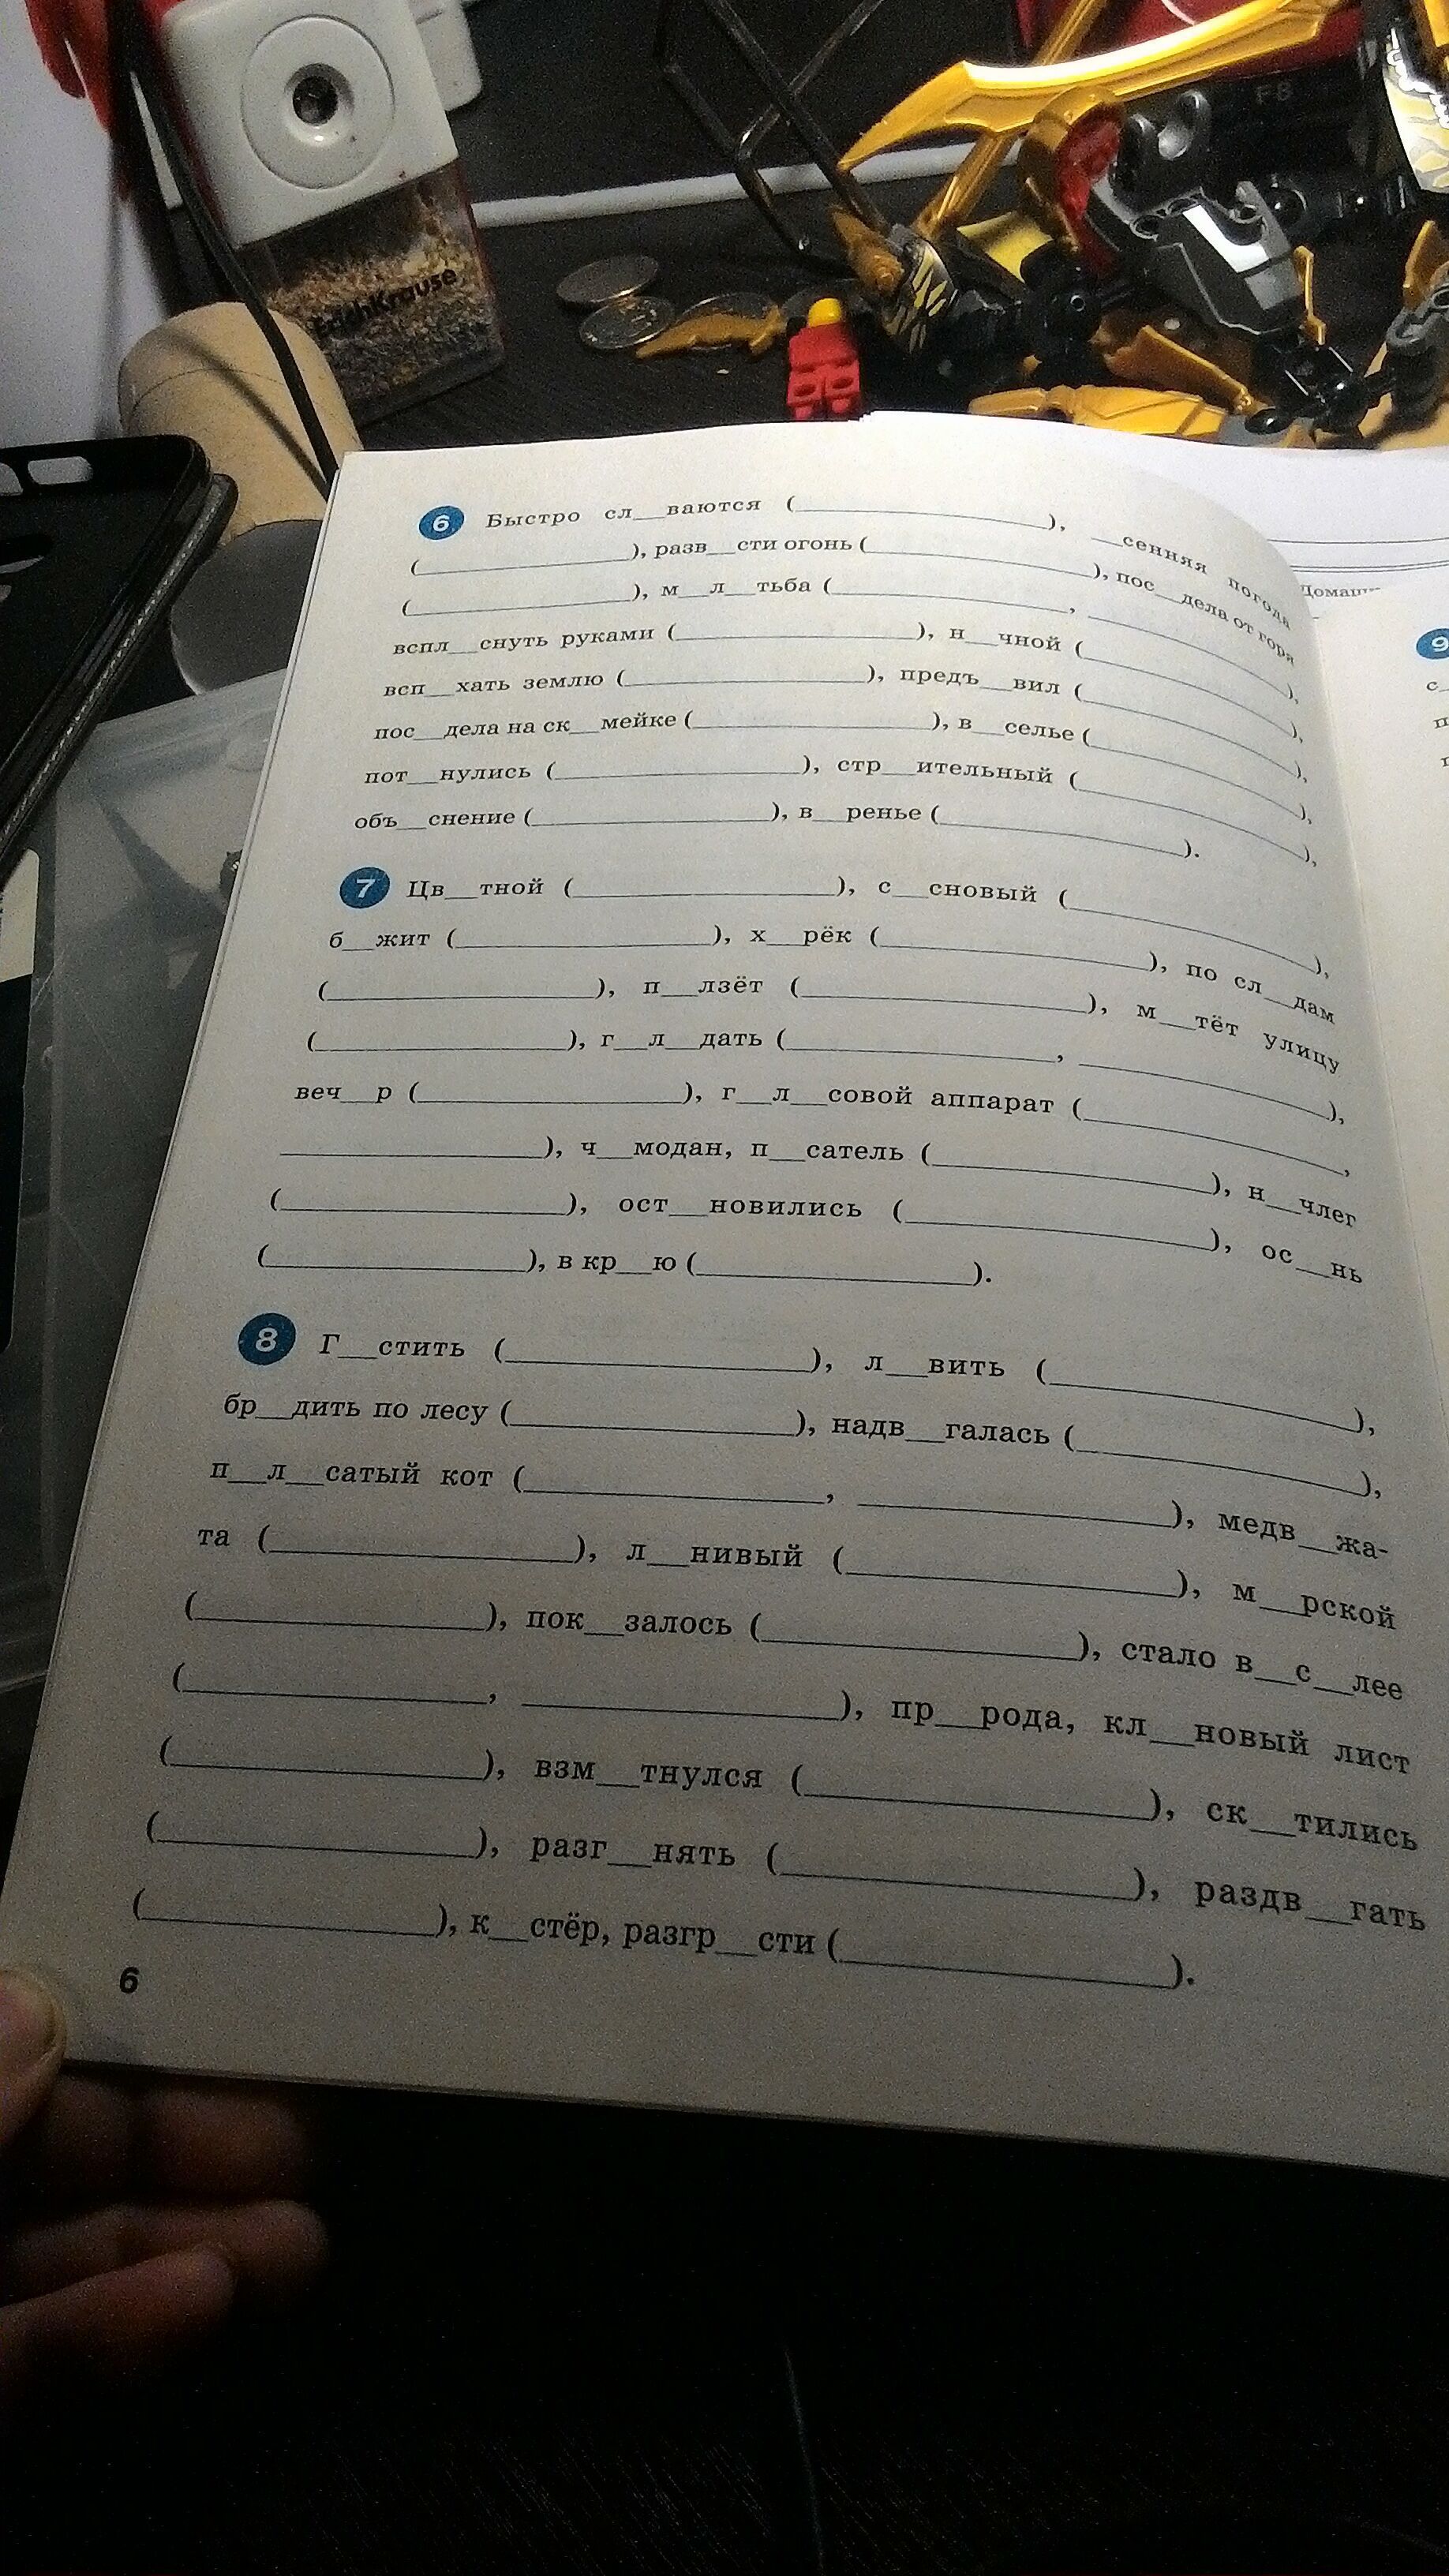 F8
ErichKrause
6 Быстро сл__ваются (____________), __сенняя погода
(____________), разв__сти огонь (____________), пос__дела от горя
(____________), м__л__тьба (____________, ____________),
вспл__снуть руками (____________), н__чной (____________),
всп__хать землю (____________), предъ__вил (____________),
пос__дела на ск__мейке (____________), в__селье (____________),
пот__нулись (____________), стр__ительный (____________),
объ__снение (____________), в__ренье (____________).
7 Цв__тной (____________), с__сновый (____________),
б__жит (____________), х__рёк (____________), по сл__дам
(____________), п__лзёт (____________), м__тёт улицу
(____________), г__л__дать (____________, ____________),
веч__р (____________), г__л__совой аппарат (____________,
____________), ч__модан, п__сатель (____________), н__члег
(____________), ост__новились (____________), ос__нь
(____________), в кр__ю (____________).
8 Г__стить (____________), л__вить (____________),
бр__дить по лесу (____________), надв__галась (____________),
п__л__сатый кот (____________, ____________), медв__жа-
та (____________), л__нивый (____________), м__рской
(____________), пок__залось (____________), стало в__с__лее
(____________, ____________), пр__рода, кл__новый лист
(____________), взм__тнулся (____________), ск__тились
(____________), разг__нять (____________), раздв__гать
(____________), к__стёр, разгр__сти (____________).
6
9
с